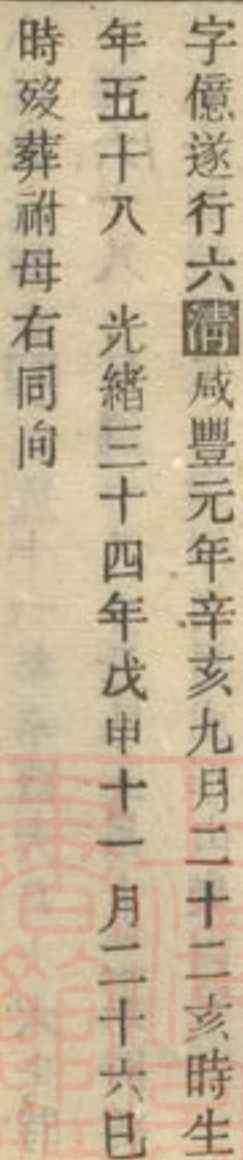 字億遂行六清咸豐元年辛亥九月二十二亥時生
年五十八　光緒三十四年戊申十一月二十六巳
時歿葬祔母右同向